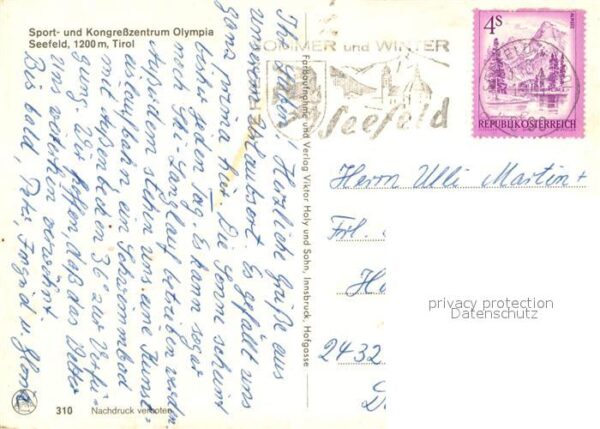 Sport- und Kongreßzentrum Olympia
Seefeld, 1200 m, Tirol
SOMMER und WINTER
Seefeld
4S
REPUBLIK ÖSTERREICH
Ihr Lieben! Herzliche Grüße aus
unserem Urlaubsort. Es gefällt uns
ganz prima hier. Die Sonne scheint
bisher jeden Tag. Es kann sogar
noch Ski-Langlauf betrieben werden.
Außerdem stehen uns eine Kunst-
eislaufbahn, ein Schwimmbad
mit Außenbecken 36° zur Verfü-
gung. Wir hoffen, daß das Wetter
uns weiterhin verwöhnt.
Bis bald, Ingrid u.
Farbaufnahme und Verlag Viktor Holy und Sohn, Innsbruck, Hofgasse
Herrn Ulli Martin +
Frl.
2432
privacy protection
Datenschutz
310 Nachdruck verboten